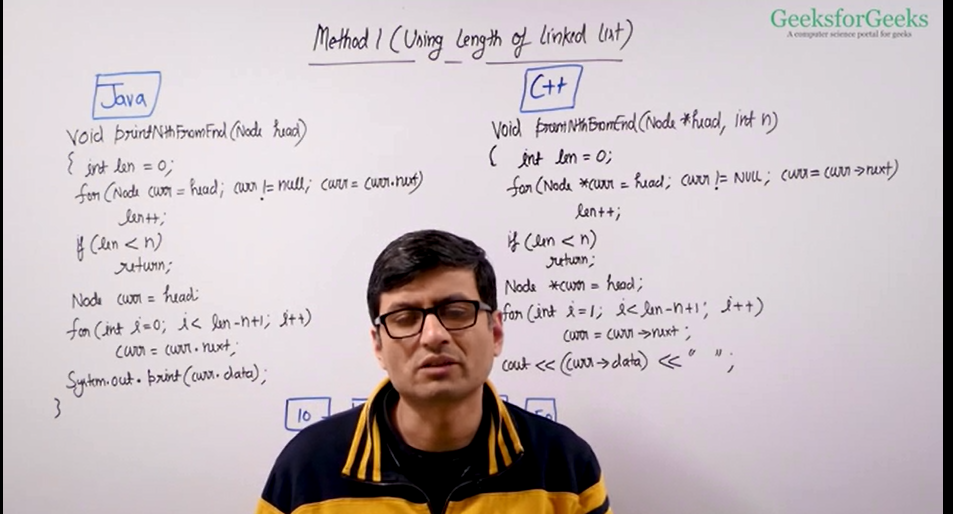 GeeksforGeeks
A computer science portal for geeks
Method 1 (Using Length of Linked List)
Java
void printNthFromEnd(Node head)
{ int len = 0;
for(Node curr = head; curr != null; curr = curr.next)
len++;
if (len < n)
return;
Node curr = head;
for(int i=0; i< len-n+1; i++)
curr = curr.next;
System.out.print(curr.data);
}
C++
void printNthFromEnd(Node *head, int n)
{ int len = 0;
for(Node *curr = head; curr != NULL; curr = curr->next)
len++;
if (len < n)
return;
Node *curr = head;
for(int i=1; i< len-n+1; i++)
curr = curr->next;
cout << (curr->data) << " ";
10
50